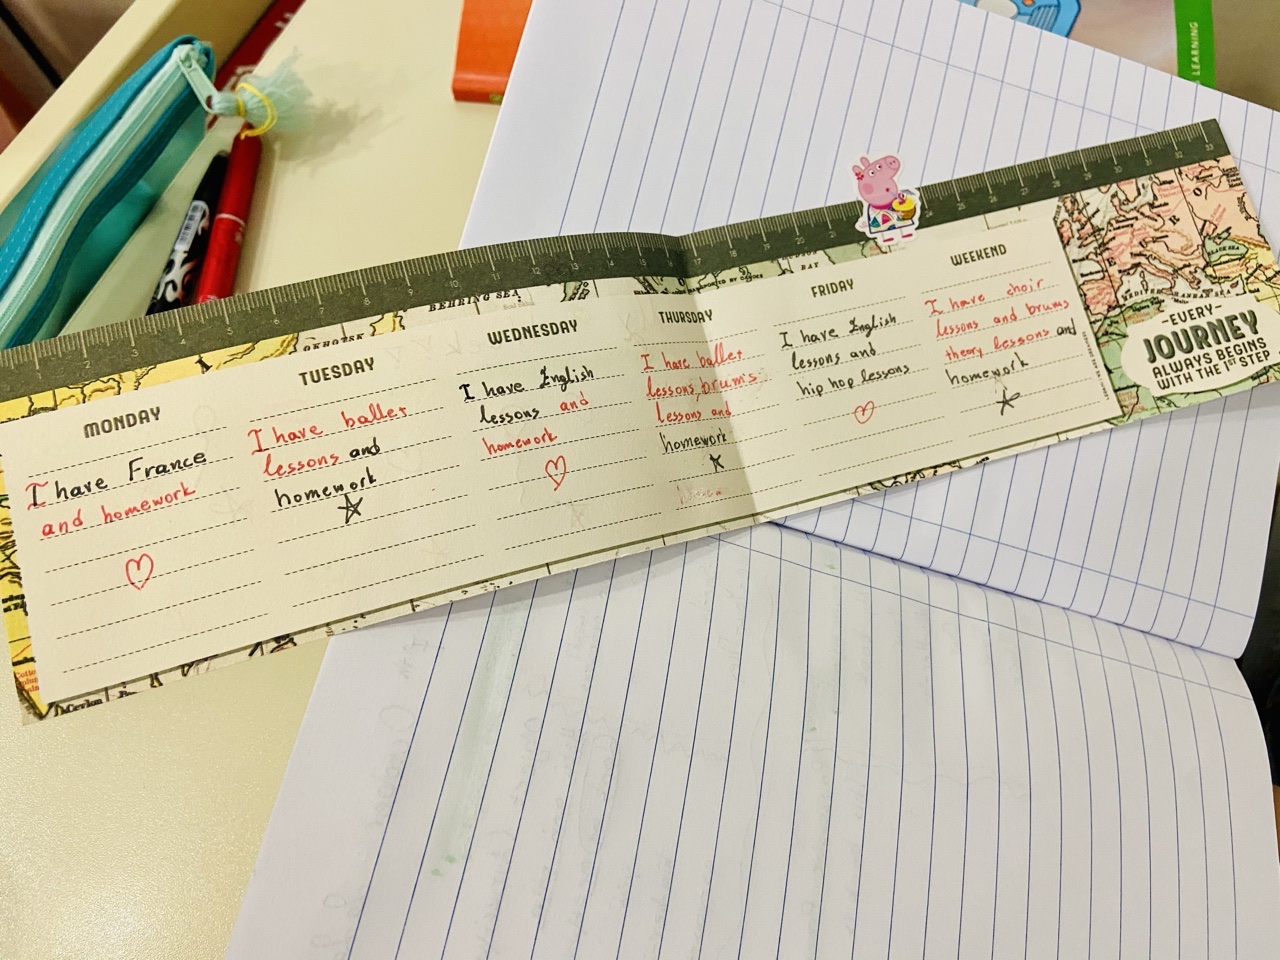 LEARNING
BEHRING SEA
OKHOTSK
BAY
MONDAY
I have France
and homework
TUESDAY
I have ballet
lessons and
homework
WEDNESDAY
I have English
lessons and
homework
THURSDAY
I have ballet
lessons, brums
lessons and
homework
FRIDAY
I have English
lessons and
hip hop lessons
WEEKEND
I have choir
lessons and brums
theory lessons and
homework
-EVERY-
JOURNEY
ALWAYS BEGINS
WITH THE 1ST STEP